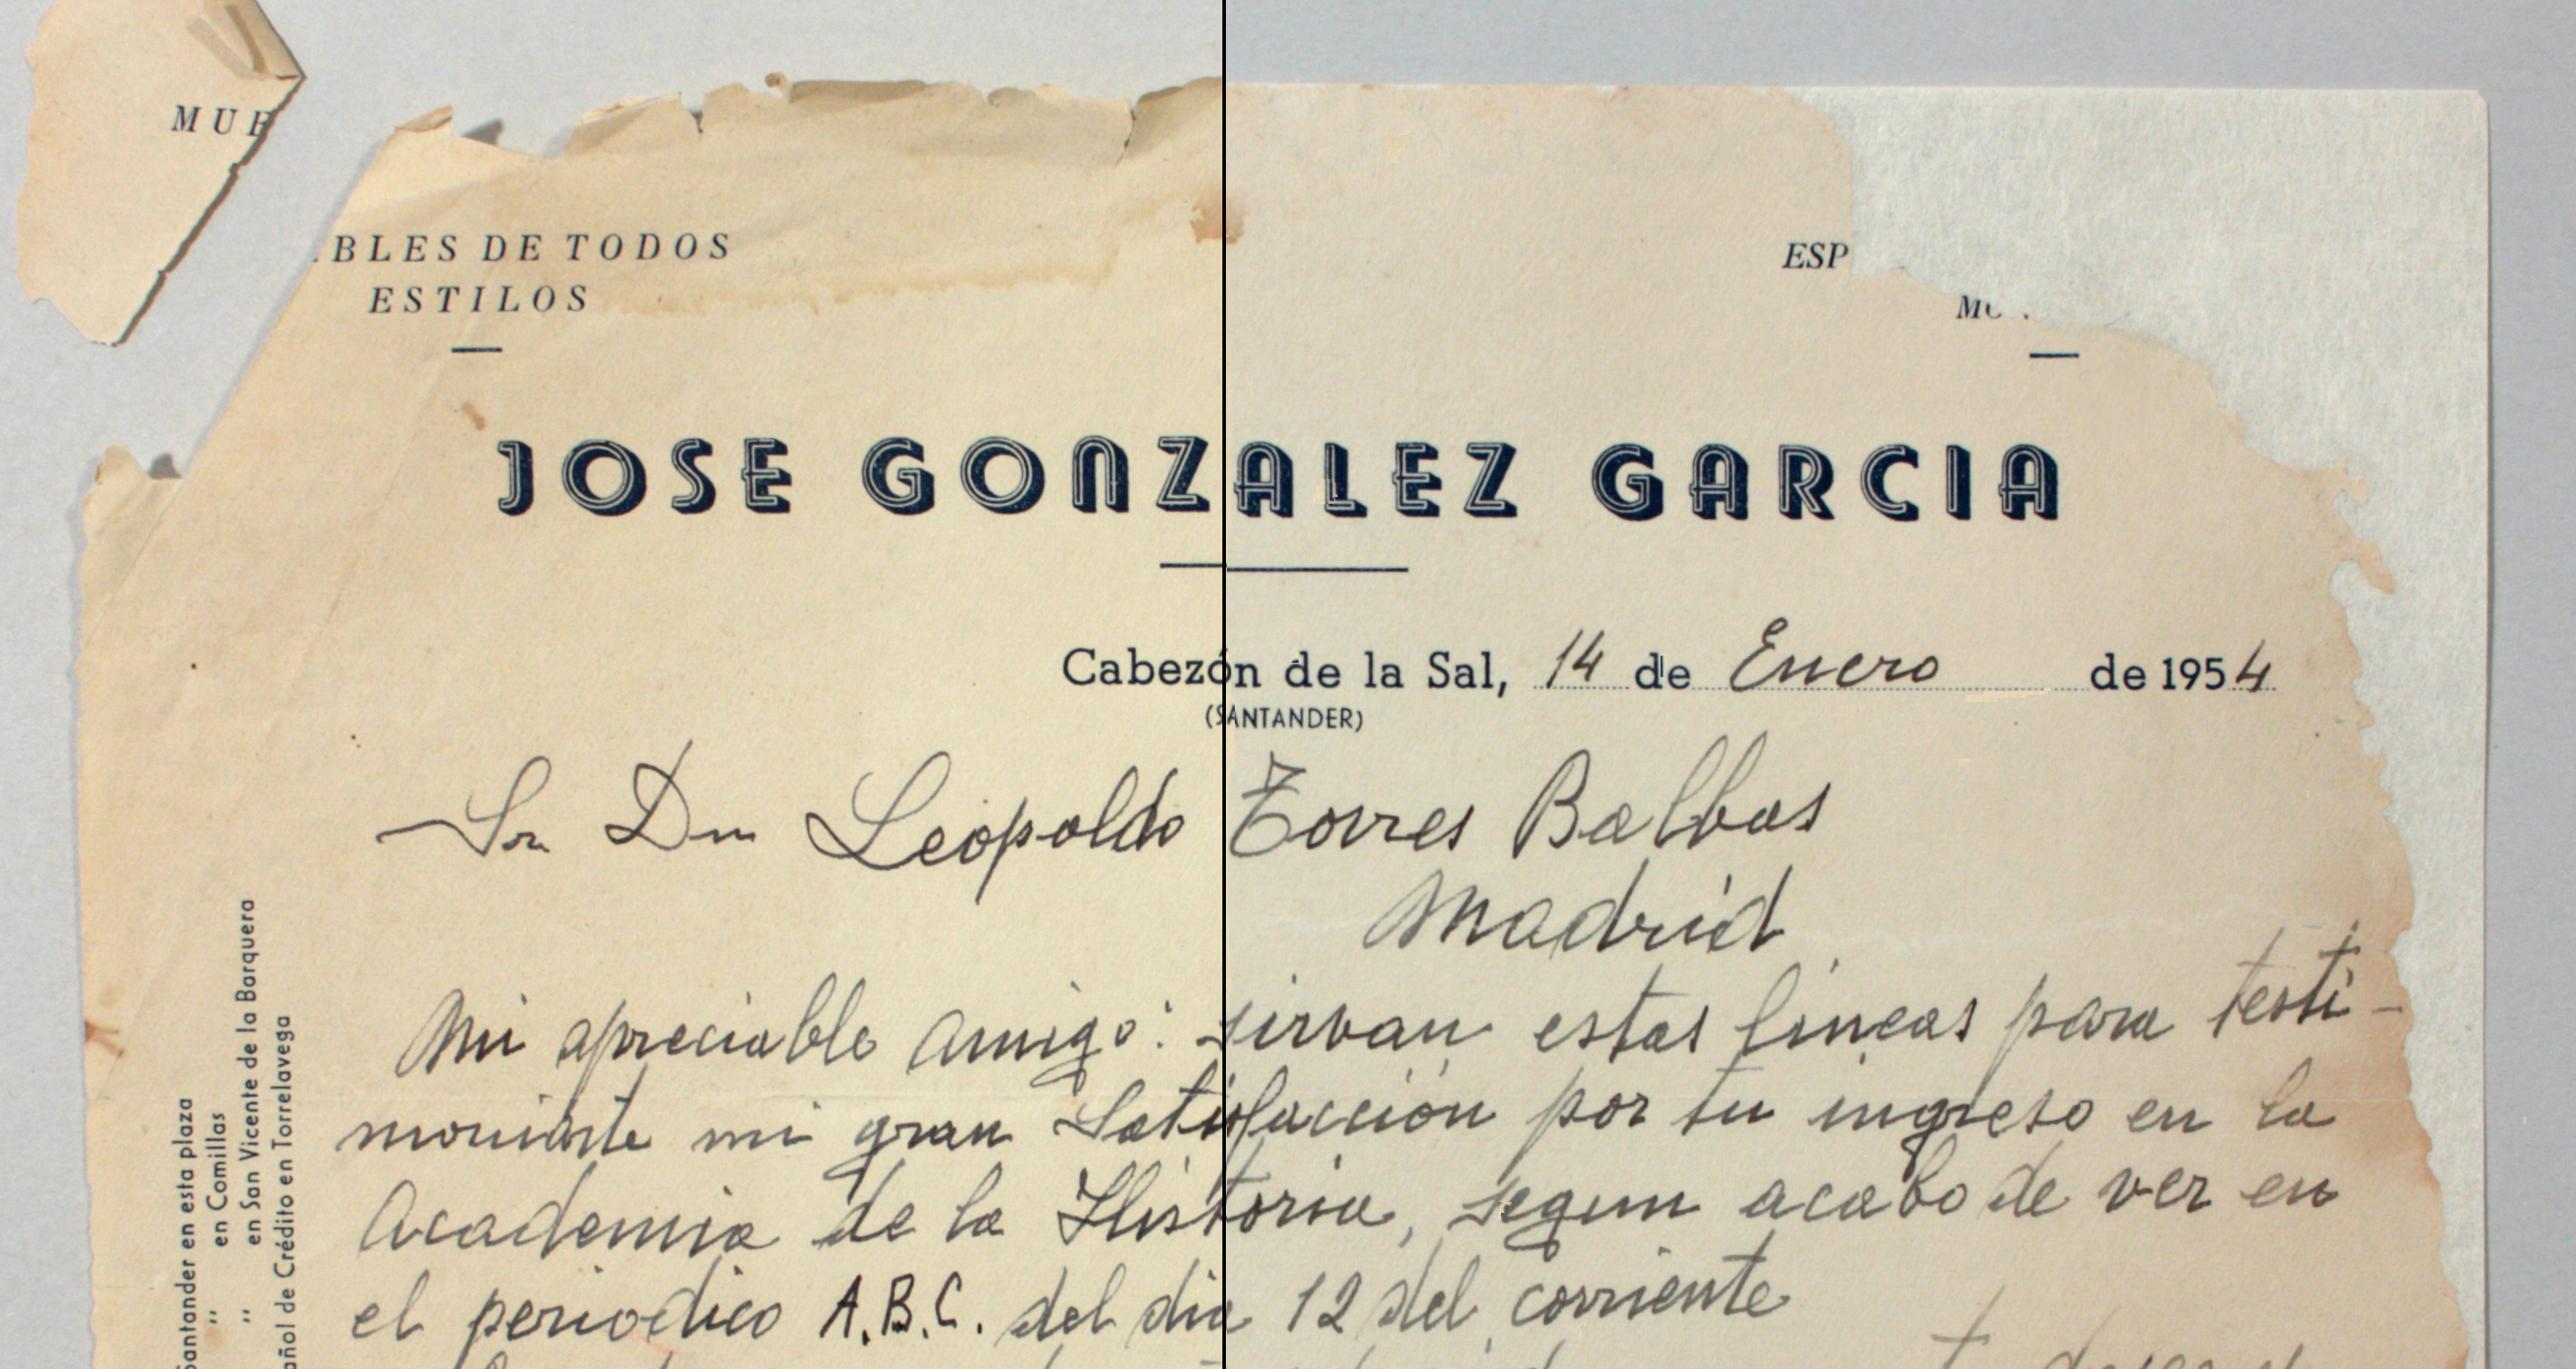 MUE
BLES DE TODOS
ESTILOS
ESP
JOSE GONZALEZ GARCIA
Cabezón de la Sal, 14 de Enero de 1954
(SANTANDER)
Sr Dn Leopoldo Torres Balbas
Madrid
Mi apreciable amigo: sirvan estas lineas para testi-
moniarte mi gran satisfacción por tu ingreso en la
Academia de la Historia, segun acabo de ver en
el periodico A.B.C. del dia 12 del corriente
Santander en esta plaza
" en Comillas
" en San Vicente de la Barquera
añol de Crédito en Torrelavega